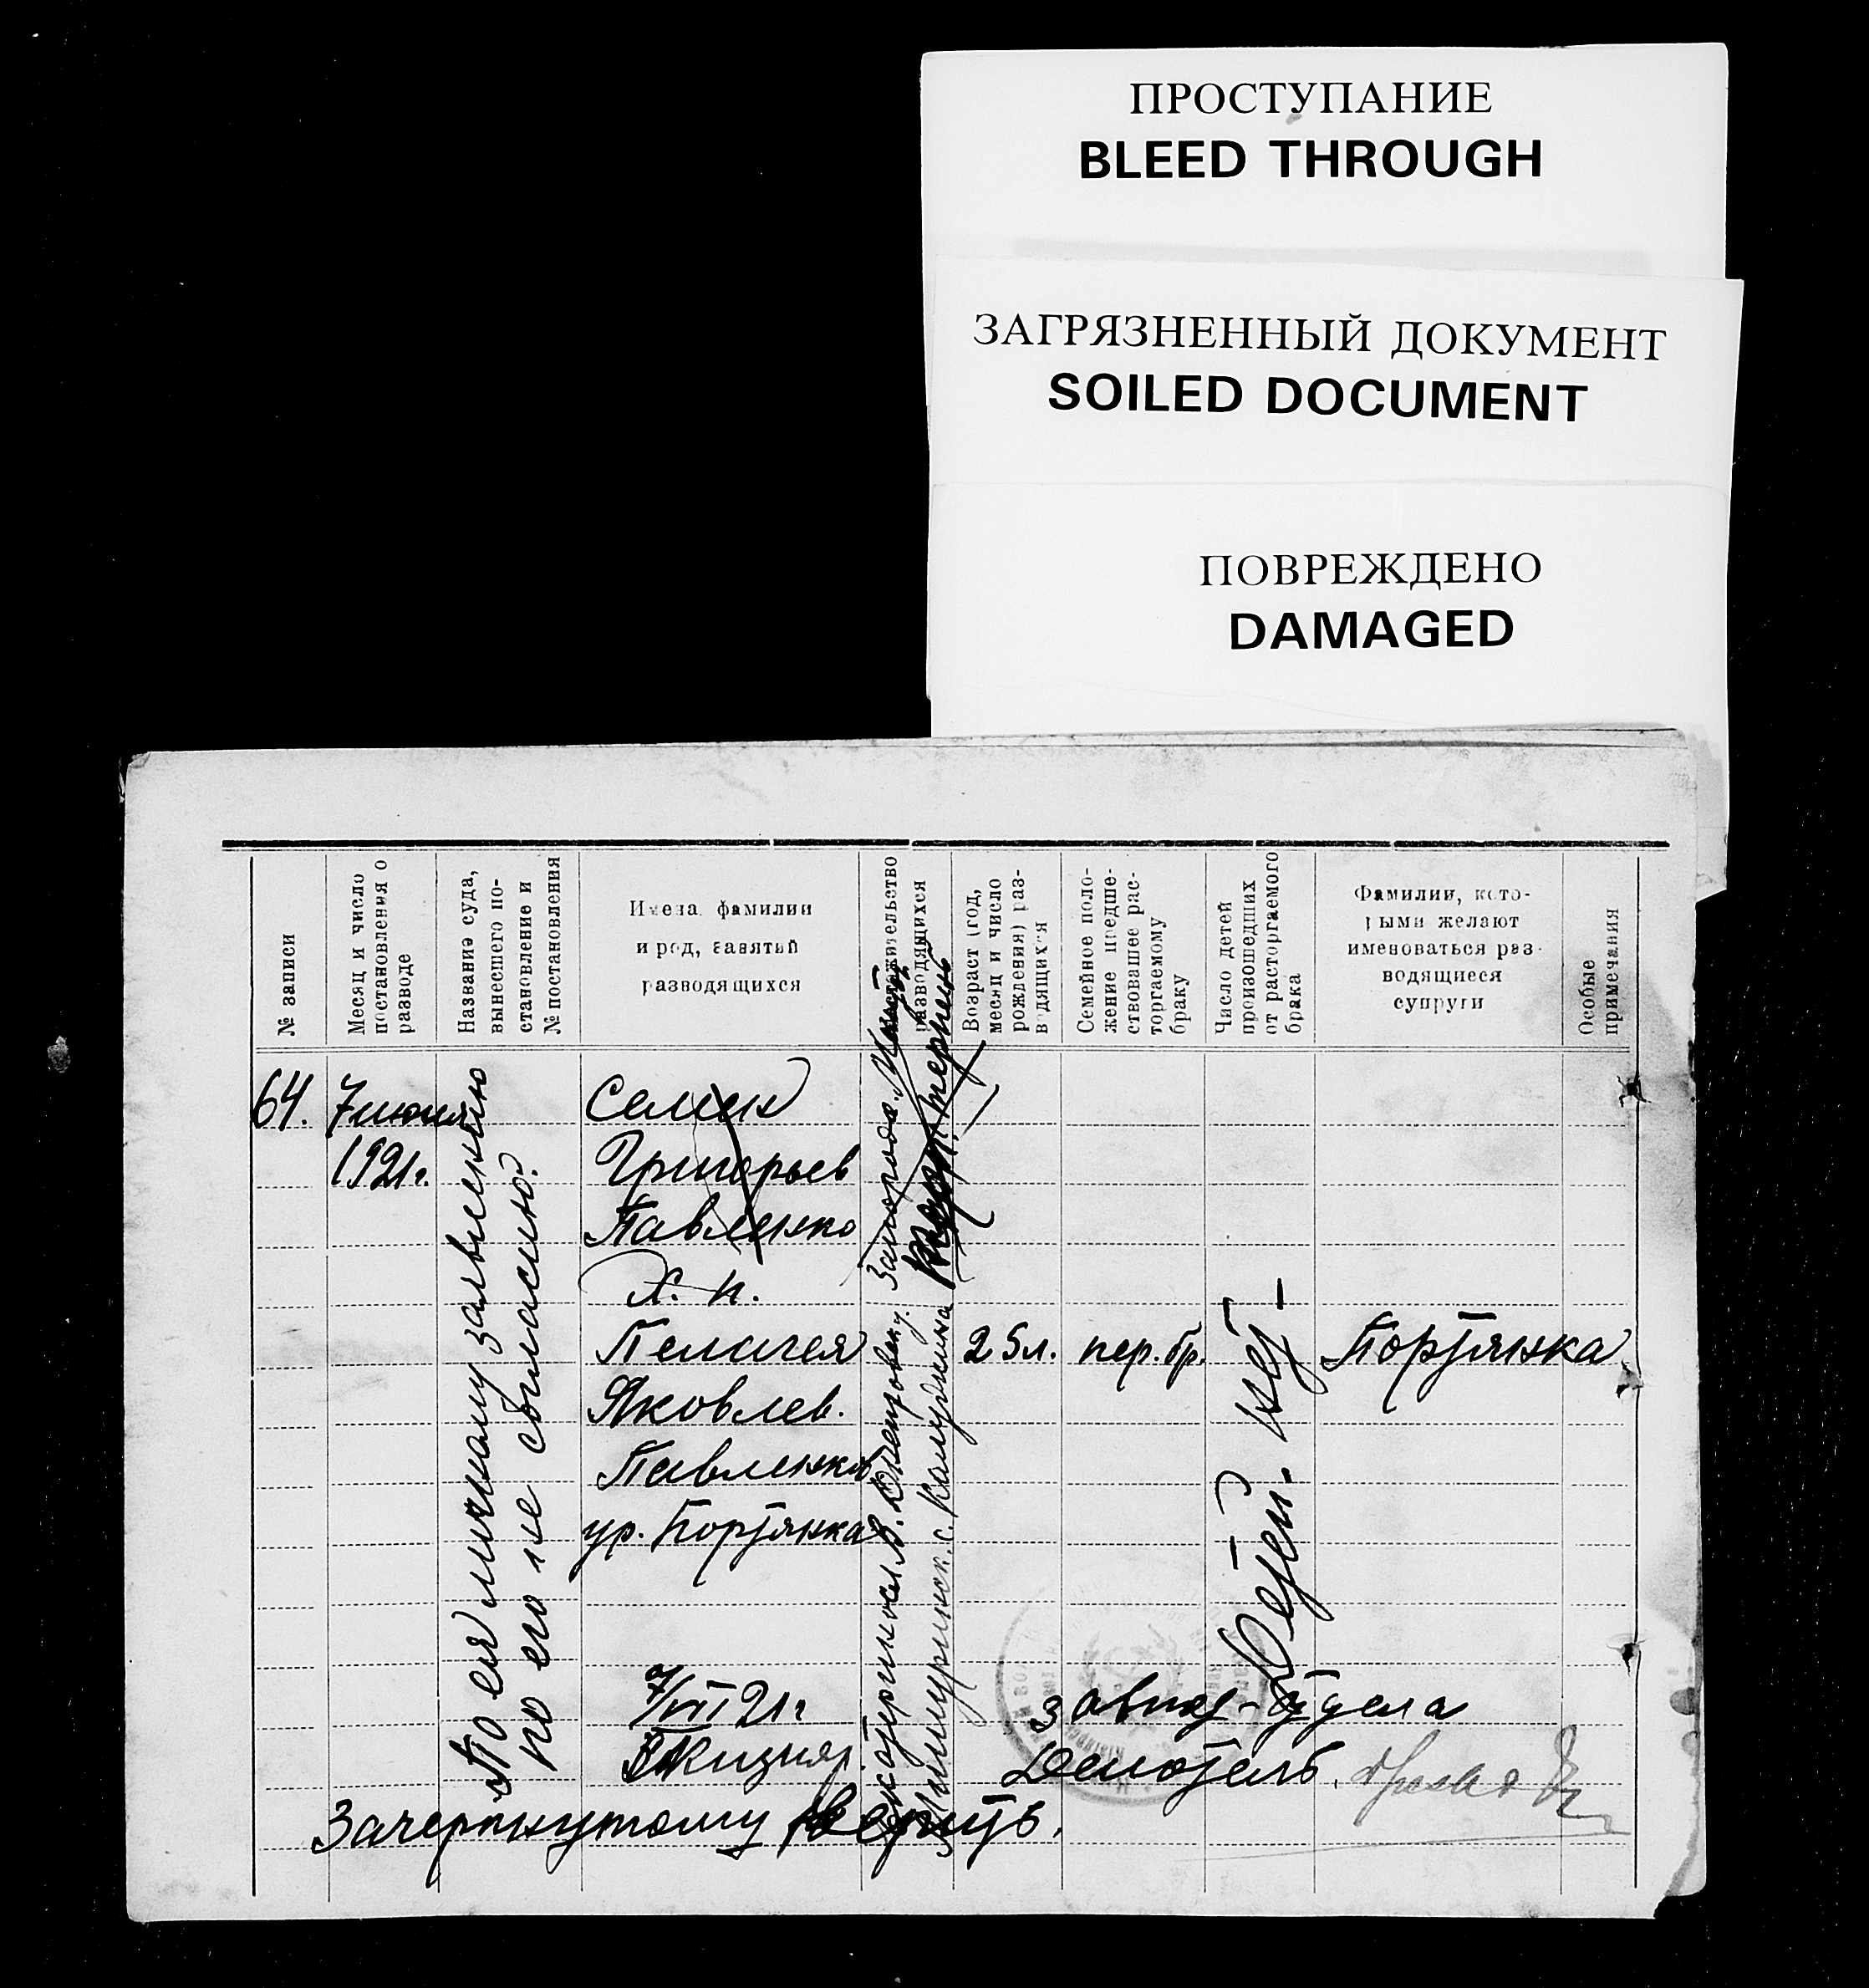 ПРОСТУПАНИЕ
BLEED THROUGH
ЗАГРЯЗНЕННЫЙ ДОКУМЕНТ
SOILED DOCUMENT
ПОВРЕЖДЕНО
DAMAGED
№ записи
Месяц и число
постановления о
разводе
Название суда,
вынесшего по-
становление и
№ постановления
Имена, фамилии
и род, занятый
разводящихся
Местожительство
разводящихся
Возраст (год,
месяц и число
рождения) раз-
водящихся
Семейное поло-
жение предше-
ствовавшее рас-
торгаемому
браку
Число детей
происшедших
от расторгаемого
брака
Фамилии, кото-
рыми желают
именоваться раз-
водящиеся
супруги
Особые
примечания
64.
7 июня
1921г.
По ея личному заявлению
по его не согласию.
Семен
Григорьев
Павленко
Х. п.
Пелагея
Яковлев.
Павленков
ур. Портянка
В. Днепровску.
с.
25л.
пер. бр.
Детей. нет-
Портянка
7/VI 21г
завпод-отдела
Делотель.
Зачеркнутому верить.